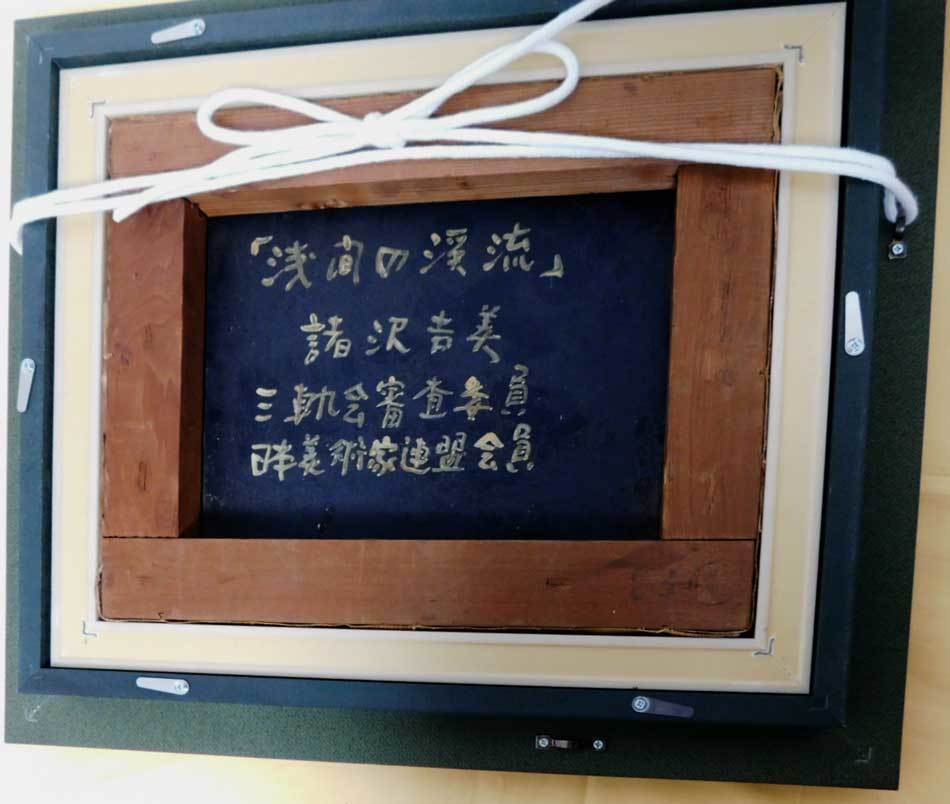 「浅間の渓流」
諸沢吉美
三軌会審査委員
日本美術家連盟会員